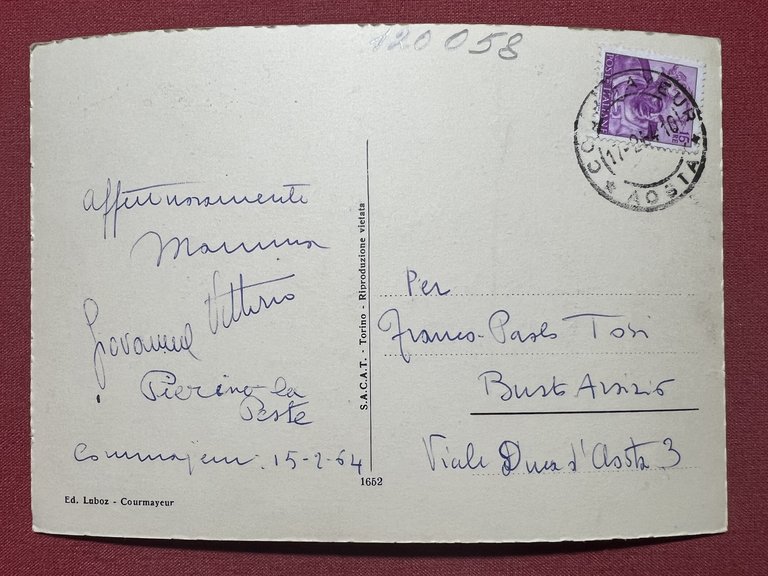 120058
POSTE ITALIANE
COURMAYEUR
17-2-64-10
* AOSTA *
Affettuosamente
Mamma
Vittorio
Giovanni
Pierino la
Peste
Courmajeur 15-2-64
Ed. Luboz - Courmayeur
S.A.C.A.T. - Torino - Riproduzione vietata
1652
Per
Franco-Paolo Tosi
Busto Arsizio
Viale Duca d'Aosta 3